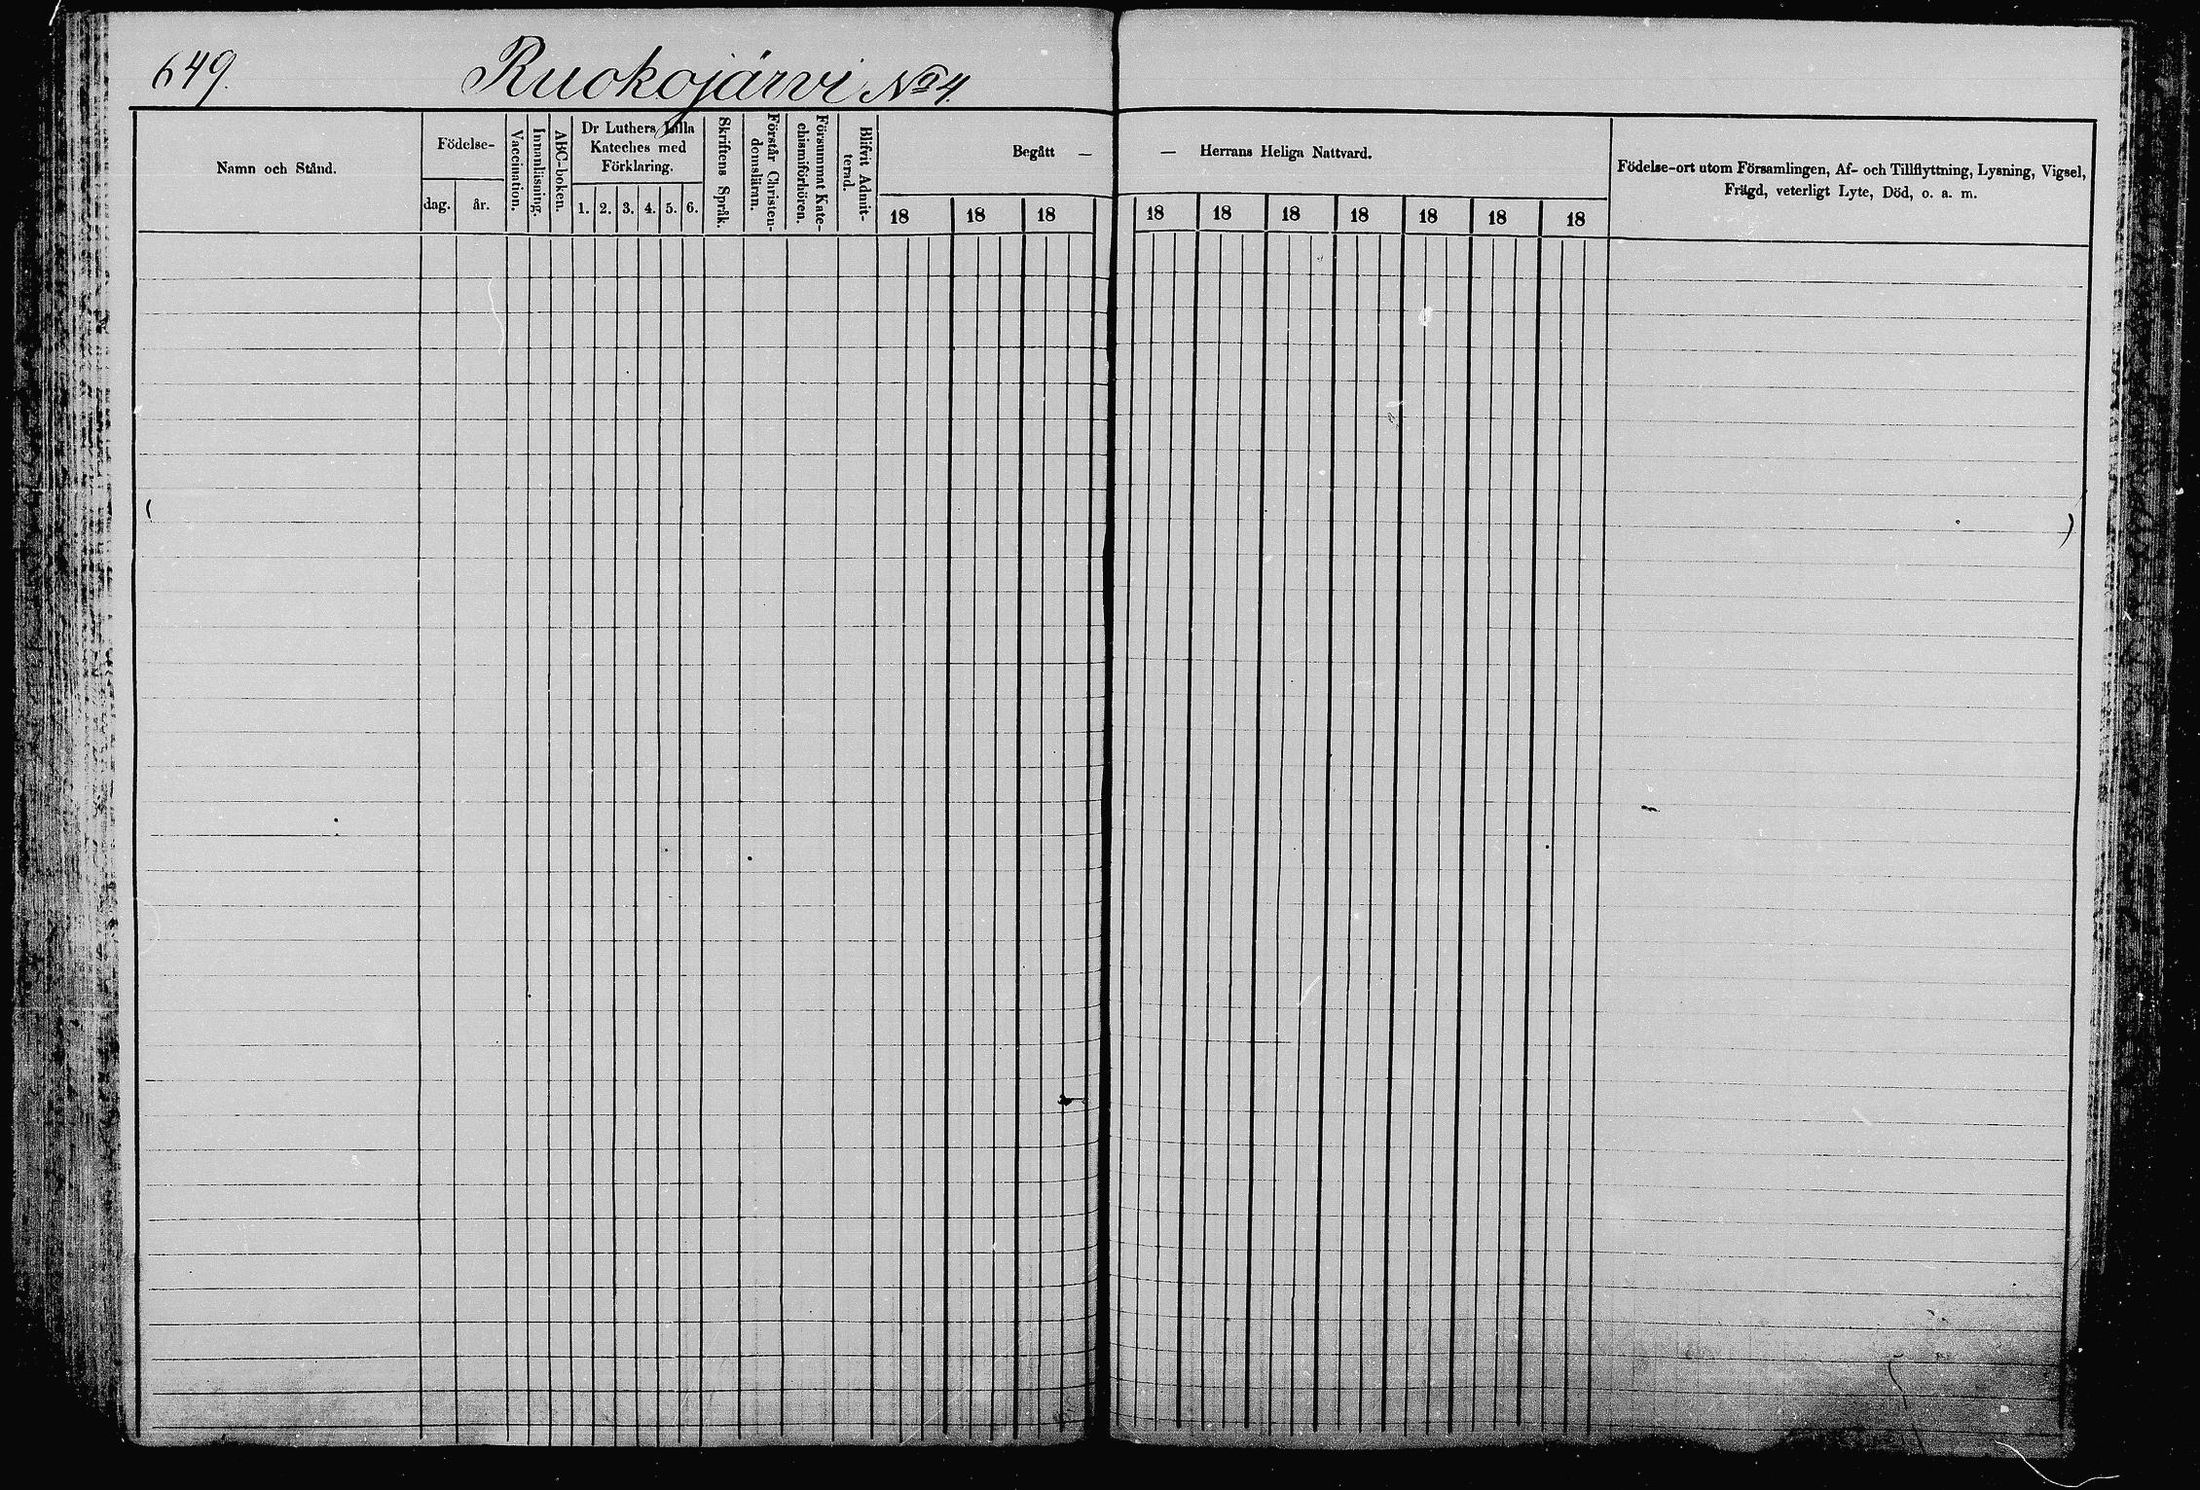 649.
Ruokojärvi No 4.
Namn och Stånd.
Födelse-
dag.
år.
Vaccination.
Innanläsning.
ABC-boken.
Dr Luthers Lilla
Kateches med
Förklaring.
1. 2. 3. 4. 5. 6.
Skriftens Språk.
Förstår Christen-
domsläran.
Försummat Kate-
chismiförhören.
Blifvit Admit-
terad.
Begått —
18 18 18
— Herrans Heliga Nattvard.
18 18 18 18 18 18 18
Födelse-ort utom Församlingen, Af- och Tillflyttning, Lysning, Vigsel,
Frägd, veterligt Lyte, Död, o. a. m.